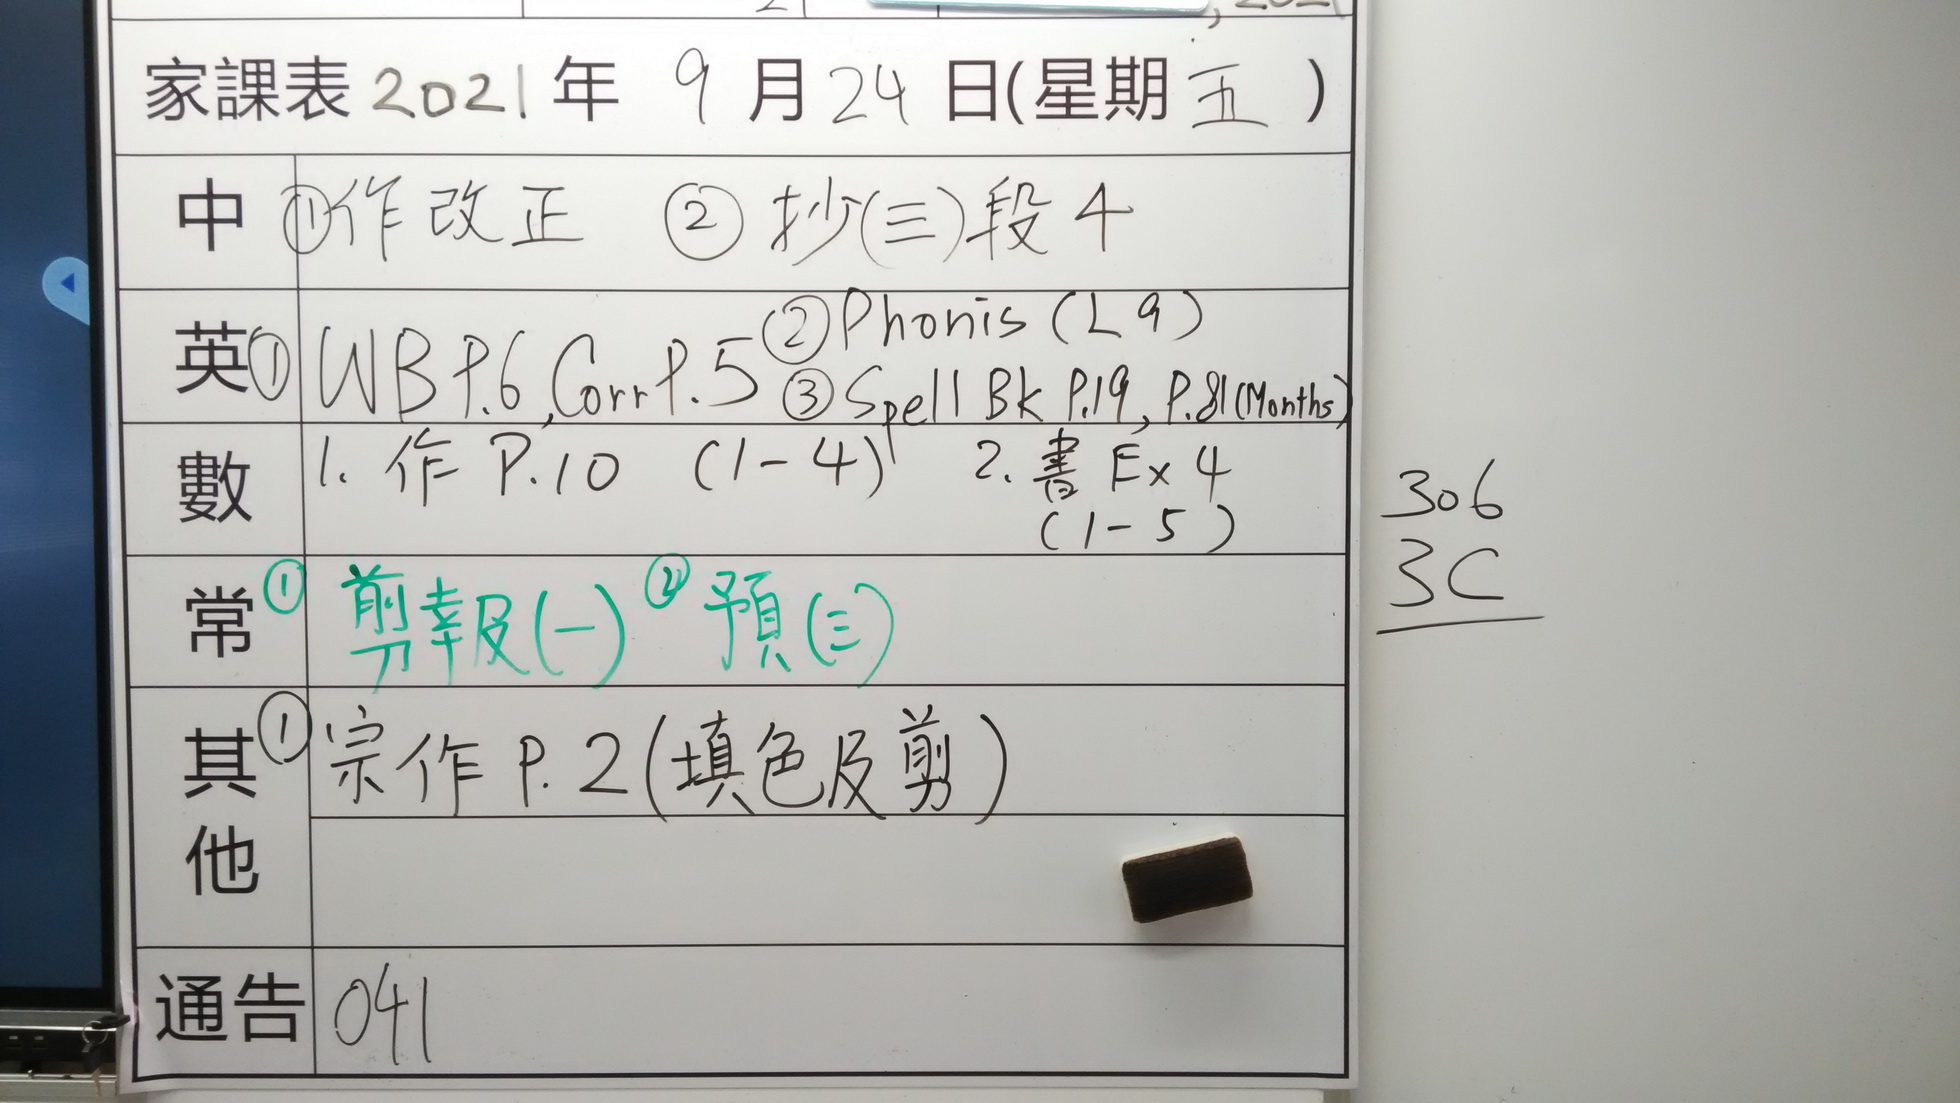 家課表 2021 年 9 月 24 日(星期 五 )
中 ①作改正 ② 抄(三)段4
英 ① WB P.6, Corr P.5 ② Phonis (L9)
③ Spell Bk P.19, P.81 (Months)
數 1. 作 P.10 (1-4) 2. 書 Ex 4
(1-5)
常 ① 剪報(一) ② 預(三)
其他 ① 宗作 P.2 (填色及剪)
通告 041
306
3C